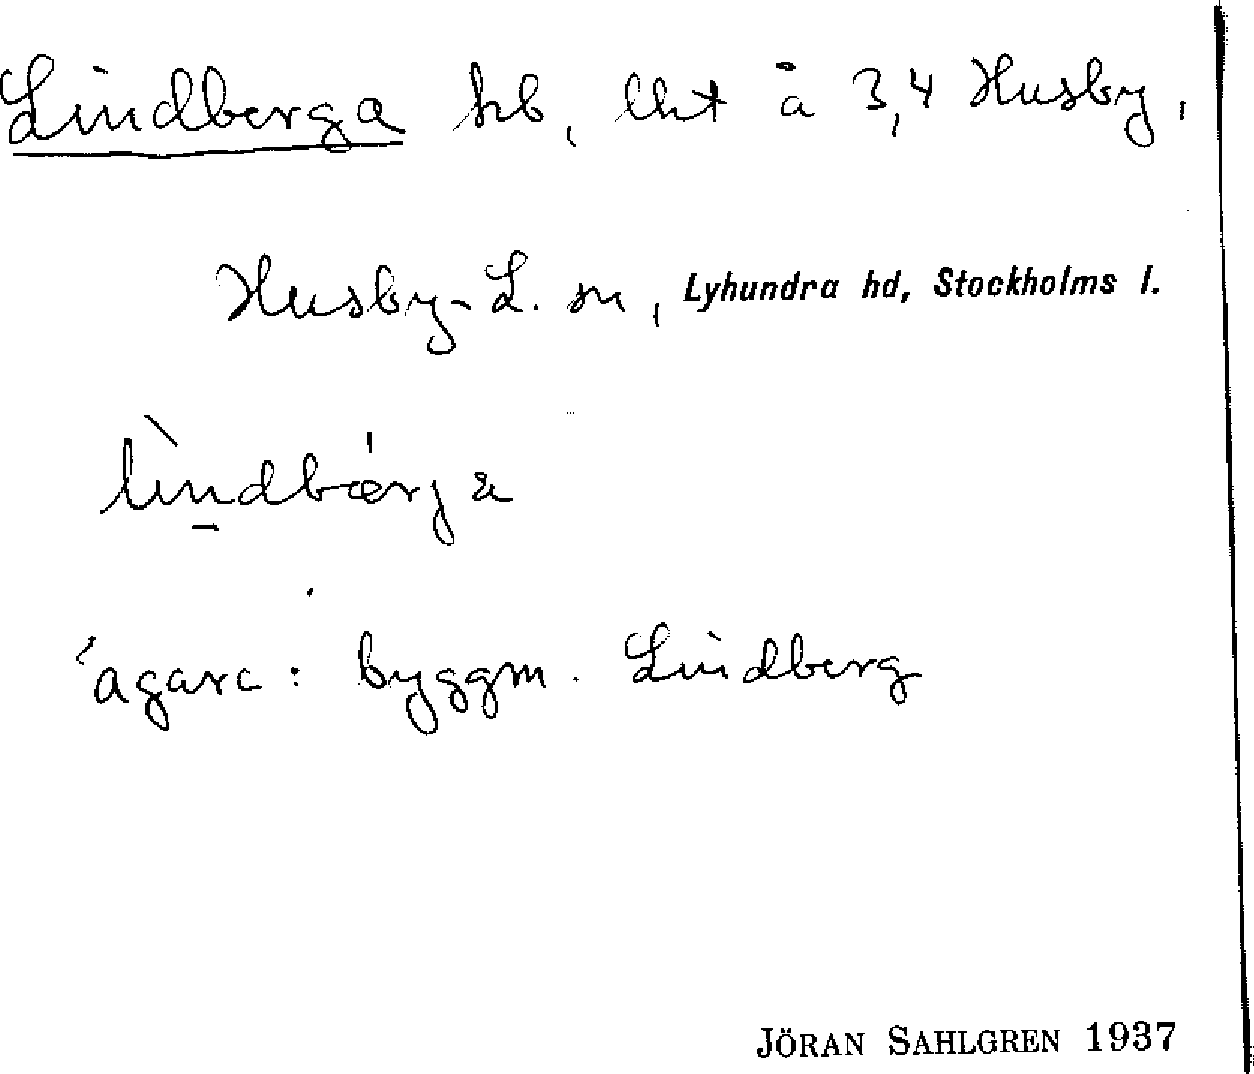 Lindberga hb, lht å 3,4 Husby,
Husby-L. sn, Lyhundra hd, Stockholms l.
lìndbær̍ja
ägare: byggm. Lindberg
JÖRAN SAHLGREN 1937